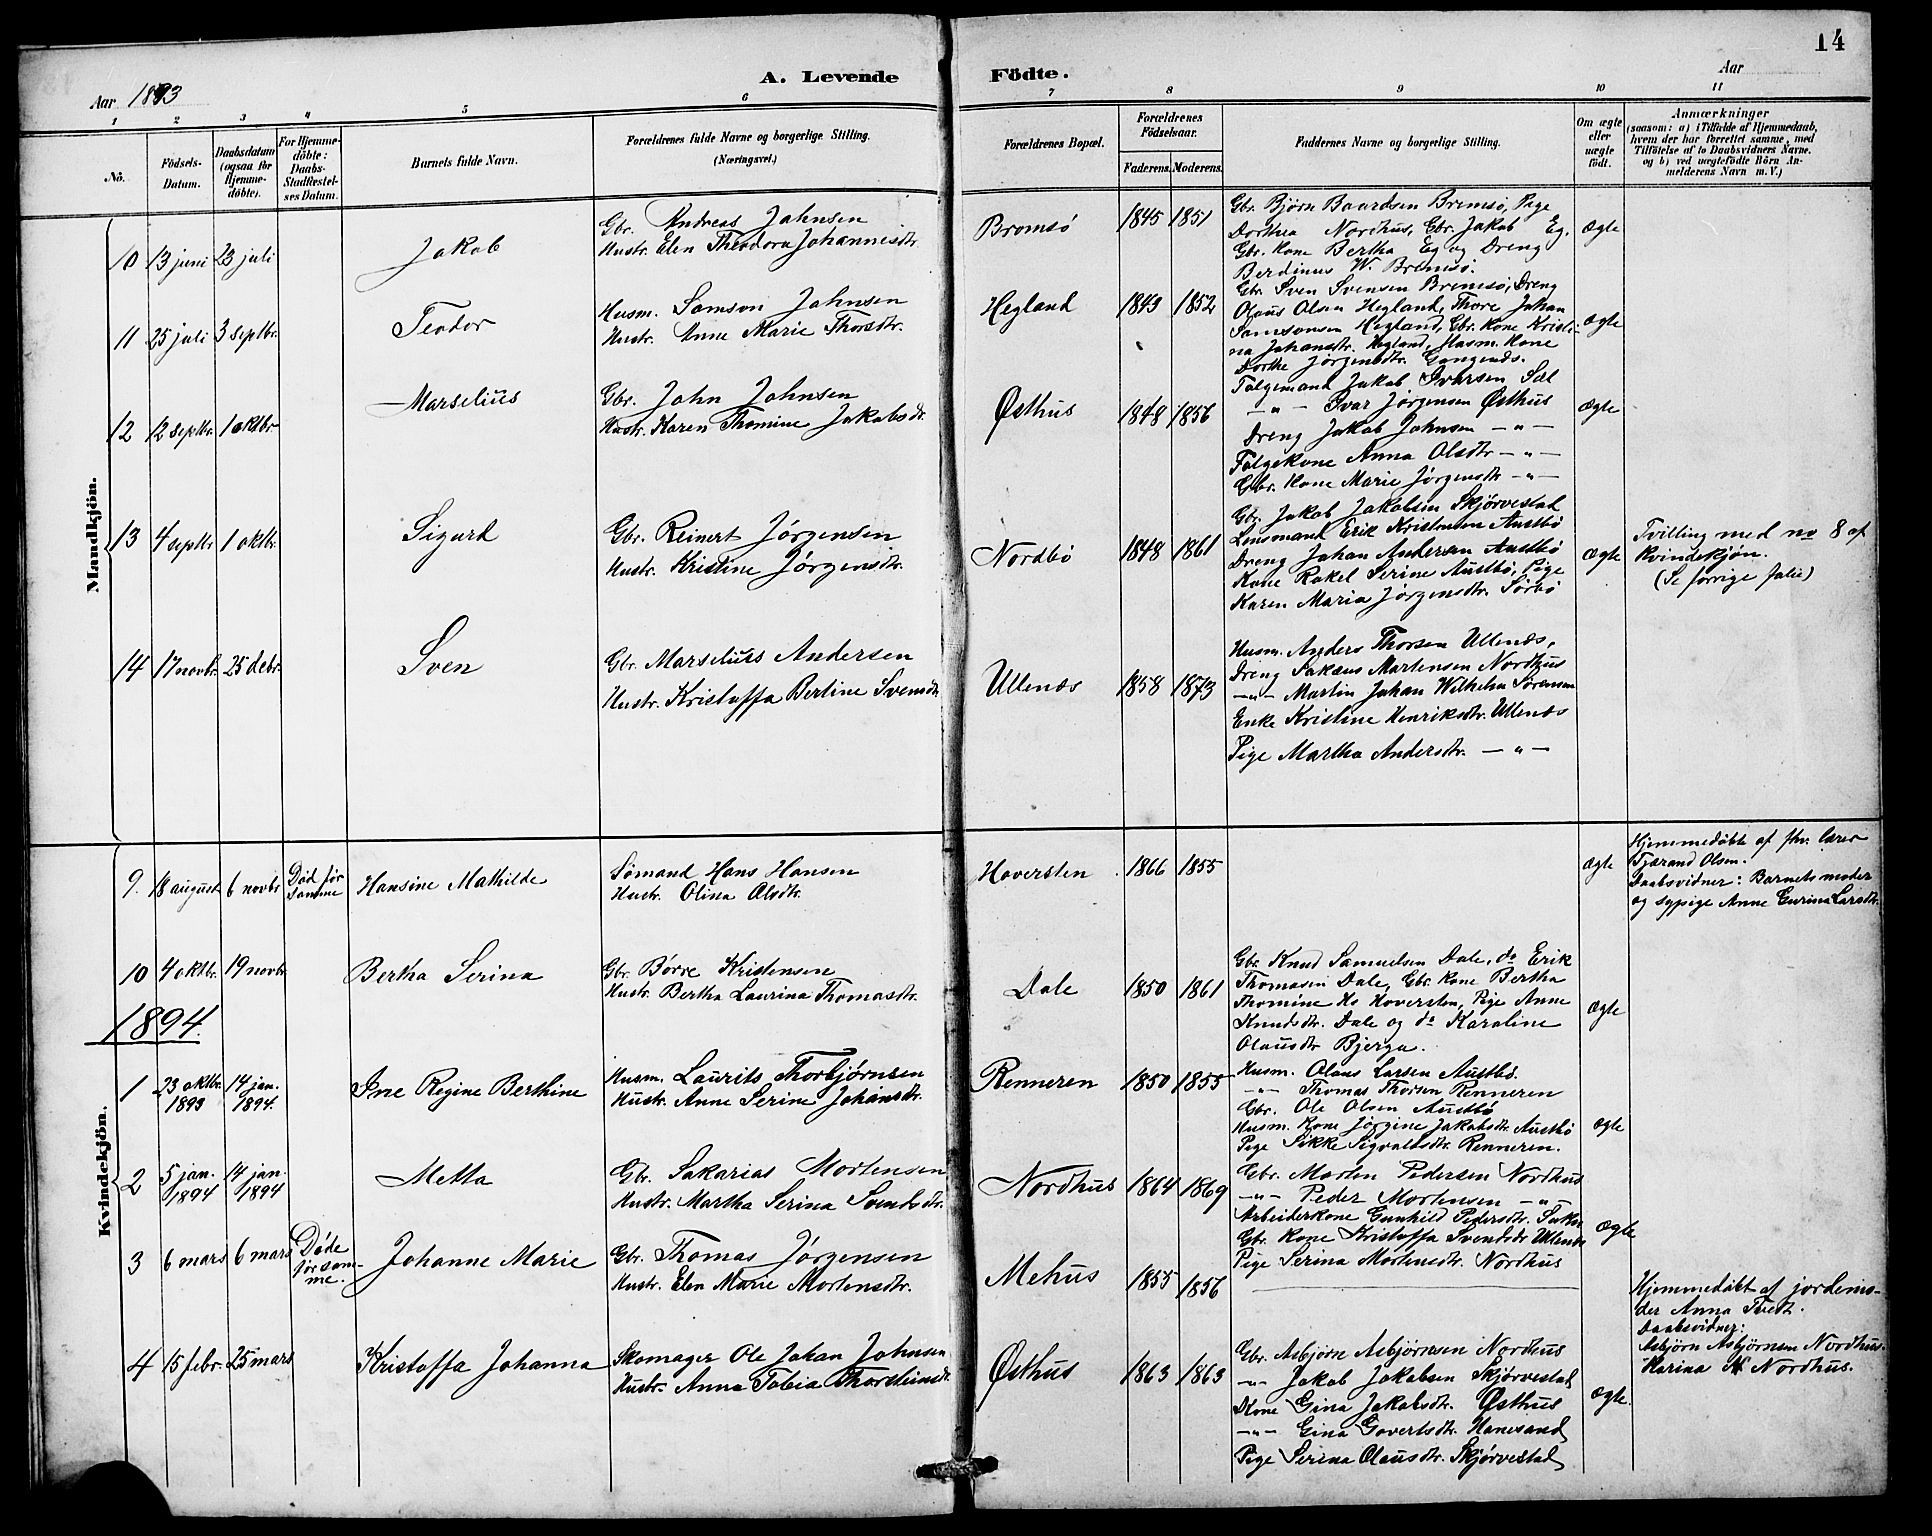 14
A. Levende Fødte.
Aar 1893
Aar
1 2 3 4 5 6 7 8 9 10 11
No.
Födsels-Datum.
Daabsdatum (ogsaa för Hjemmedöbte).
For Hjemmedöbte: Daabs-Stadfæstelses Datum.
Barnets fulde Navn.
Forældrenes fulde Navne og borgerlige Stilling.
(Næringsvei.)
Forældrenes Bopæl.
Forældrenes Födselsaar.
Faderens. Moderens.
Faddernes Navne og borgerlige Stilling.
Om ægte eller uægte födt.
Anmærkninger
(saasom: a) i Tilfælde af Hjemmedaab,
hvem der har forrettet samme, med
Tilföielse af to Daabsvidners Navne.
og b) ved uægtefödte Börn An-
melderens Navn m. V.)
Mandkjön.
10 13 juni 23 juli Jakob
Gbr. Andreas Johnsen
Hustr. Elen Theodora Johannesdtr.
Bromsø 1845 1851
Gbr. Bjørn Baardsen Bremsø, Pige
Dorthea Nordhus, Gbr. Jakob Eg,
Gbr. Kone Bertha Eg og Dreng
Berdinus W. Bremsø.
Ægte
11 25 juli 3 septbr. Teodor
Husm. Samson Johnsen
Hustr. Anne Marie Thorsdtr.
Hegland 1849 1852
Gbr. Sven Svensen Bremsø, Dreng
Olaus Olsen Hegland, Thore Johan
Samsonsen Hegland, Gbr. Kone Kristi-
na Johansdtr. Hegland, Husm. Kone
Dorthe Jørgensdtr. Gangenæs.
Ægte
12 12 septbr. 1 oktbr Marselius
Gbr. John Johnsen
Hustr. Karen Thomine Jakobsdtr.
Østhus 1848 1856
Følgemand Jakob Ivarsen Sæl
— " — Ivar Jørgensen Østhus
Dreng Jakob Johnsen — " —
Følgekone Anna Olsdtr — " —
Gbr. Kone Marie Jørgensdtr — " —
Ægte
13 4 septbr 1 oktbr. Sigurd
Gbr. Reinert Jørgensen
Hustr. Kristine Jørgensdtr.
Nordbø 1848 1861
Gbr. Jakob Jakobsen Skjørvestad
Lensmand Erik Kristensen Austbø
Dreng Johan Andersen Austbø
Kone Rakel Serine Austbø, Pige
Karen Maria Jørgensdtr. Sørbø
Ægte
Tvilling med no 8 af
Kvindekjøn.
(Se forrige folie)
14 17 novbr. 25 debr. Sven
Gbr. Marselius Andersen
Hustr. Kristoffa Bertine Svensdtr
Ullenæs 1858 1873
Husm. Anders Thorsen Ullenæs,
Dreng Sakæus Martensen Nordhus
— " — Martin Johan Wilhelm Sørensen
Enke Kristine Henriksdtr. Ullenæs
Pige Martha Andersdtr. — " —
Kvindekjön.
9. 18 august 6 novbr Død før samme Hansine Mathilde
Sømand Hans Hansen
Hustr. Olina Olsdtr.
Hoversten 1866 1855
Ægte
Hjemmedøbt af fhv. lærer
Tjærand Olsen.
Daabsvidner: Barnets moder
og sypige Anne Gurina Larsdtr.
10 4 oktbr. 19 novbr. Bertha Serina
Gbr. Børre Kristensen
Hustr. Bertha Laurina Thomasdtr.
Dale 1850 1861
Gbr. Knud Samuelsen Dale, do Erik
Thomasen Dale, Gbr. Kone Bertha
Thomine Ho Hoversten, Pige Anne
Knudsdtr. Dale og do Karoline
Olausdtr Bjerga.
Ægte
1894.
1 23 oktbr. 1893 14 jan. 1894. Ine Regine Berthine
Husm. Laurits Thorbjørnsen
Hustr. Anne Serine Johansdtr.
Renneren 1850 1855
Husm. Olaus Larsen Austbø.
— " — Thomas Thorsen Renneren
Gbr. Ole Olsen Austbø
Husm. Kone Jørgine Jakobsdtr Austbø
Pige Sikke Sigvaltsdtr. Renneren.
Ægte
2 5 jan. 1894 14 jan. 1894 Metta
Gbr. Sakarias Mortensen
Hustr. Martha Serina Svendsdtr.
Nordhus 1864 1869
Gbr. Morten Pedersen Nordhus
— " — Peder Mortensen — " —
Arbeiderkone Gunhild Pedersdtr.
Gbr. Kone Kristoffa Svendsdtr Ullenæs
Pige Serina Mortensdtr. Nordhus
Ægte
3 6 mars 6 mars Døde før samme. Johanne Marie
Gbr. Thomas Jørgensen
Hustr. Elen Marie Mortensdtr.
Mehus 1855 1856
Hjemmedøbt af jordemo-
der Anna Tvedt.
Daabsvidner:
Asbjørn Asbjørnsen Nordhus.
Karina N Nordhus.
4 15 febr. 25 mars Kristoffa Johanna
Skomager Ole Johan Johnsen
Hustr. Anna Tobia Thorsteinsdtr
Østhus 1863 1863
Gbr. Asbjørn Asbjørnsen Nordhus
— " — Jakob Jakobsen Skjørvestad
Kone Gina Jakobsdtr. Østhus
— " — Gina Govertsdtr. Hanesand
Pige Serina Olausdtr. Skjørvestad
Ægte.